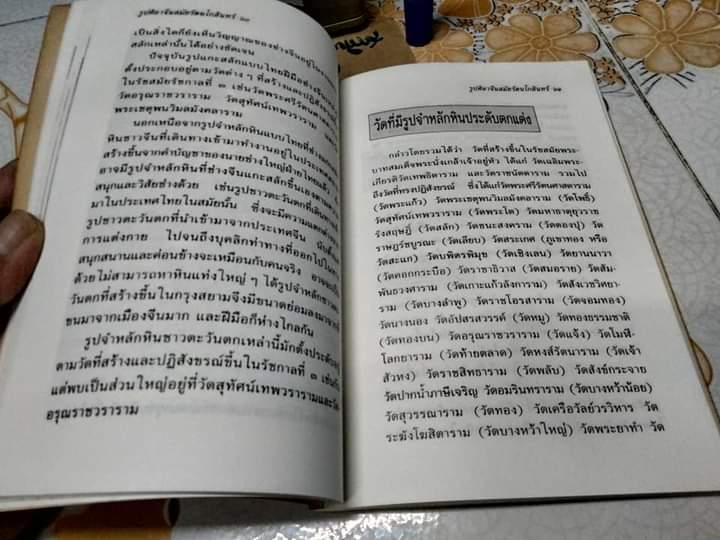 รูปศิลาจีนสมัยรัตนโกสินทร์
เป็นสิ่งใดก็ยังเห็นวิญญาณของช่างจีนอยู่ใน
สลักเหล่านั้นได้อย่างชัดเจน
ปัจจุบันรูปแกะสลักแบบไทยฝีมือช่างจีน
ตั้งประกอบอยู่ตามวัดต่าง ๆ ที่สร้างและปฏิสังขรณ์
ในรัชสมัยรัชกาลที่ ๓ เช่นวัดพระศรีรัตน
วัดอรุณราชวราราม วัดสุทัศน์เทพวราราม
พระเชตุพนวิมลมังคลาราม
นอกเหนือจากรูปจำหลักหินแบบไทยที่ช่าง
หินชาวจีนที่เดินทางเข้ามาทำงานอยู่ในประเทศ
สร้างขึ้นจากคำบัญชาของนายช่างใหญ่ฝ่ายไทยแล้ว
อาจมีรูปจำหลักหินที่ช่างจีนแกะสลักขึ้นเองตาม
สนุกและวิสัยช่างด้วย เช่นรูปชาวตะวันตกที่เดินทาง
มาในประเทศไทยในสมัยนั้น ซึ่งจะมีความแตกต่าง
รูปชาวตะวันตกที่นำเข้ามาจากประเทศจีน นับตั้งแต่
การแต่งกาย ไปจนถึงบุคลิกท่าทางที่ออกไปในทาง
สนุกสนานและค่อนข้างจะเหมือนกับคนจริง อาจจะเป็น
ด้วยไม่สามารถหาหินแท่งใหญ่ ๆ ได้รูปจำหลักชาว
วันตกที่สร้างขึ้นในกรุงสยามจึงมีขนาดย่อมลงมาจาก
ขนมาจากเมืองจีนมาก และฝีมือก็ห่างไกลกัน
รูปจำหลักหินชาวตะวันตกเหล่านี้มักตั้งประดับอยู่
ตามวัดที่สร้างและปฏิสังขรณ์ขึ้นในรัชกาลที่ ๓ เช่นกัน
แต่พบเป็นส่วนใหญ่อยู่ที่วัดสุทัศน์เทพวรารามและวัด
อรุณราชวราราม
รูปศิลาจีนสมัยรัตนโกสินทร์
วัดที่มีรูปจำหลักหินประดับตกแต่ง
กล่าวโดยรวมได้ว่า วัดที่สร้างขึ้นในรัชสมัยพระ-
บาทสมเด็จพระนั่งเกล้าเจ้าอยู่หัว ได้แก่ วัดเฉลิมพระ-
เกียรติวัดเทพธิดาราม และวัดราชนัดดาราม รวมไป
ถึงวัดที่ทรงปฏิสังขรณ์ ซึ่งได้แก่วัดพระศรีรัตนศาสดาราม
(วัดพระแก้ว) วัดพระเชตุพนวิมลมังคลาราม (วัดโพธิ์)
วัดสุทัศน์เทพวราราม (วัดพระโต) วัดมหาธาตุยุวราช
รังสฤษฎิ์ (วัดสลัก) วัดชนะสงคราม (วัดตองปุ) วัด
ราษฎร์บูรณะ (วัดเลียบ) วัดสระเกศ (ภูเขาทอง หรือ
วัดสะแก) วัดบพิตรพิมุข (วัดเชิงเลน) วัดยานนาวา
(วัดคอกกระบือ) วัดราชาธิวาส (วัดสมอราย) วัดสัม-
พันธวงศาราม (วัดเกาะแก้วลังการาม) วัดสังเวชวิศยา-
ราม (วัดบางลำพู) วัดราชโอรสาราม (วัดจอมทอง)
วัดนางนอง วัดอัปสรสวรรค์ (วัดหมู) วัดทองธรรมชาติ
(วัดทองบน) วัดอรุณราชวราราม (วัดแจ้ง) วัดโมฬี-
โลกยาราม (วัดท้ายตลาด) วัดหงส์รัตนาราม (วัดเจ้า
สัวหง) วัดราชสิทธาราม (วัดพลับ) วัดสังข์กระจาย
วัดปากน้ำภาษีเจริญ วัดอมรินทราราม (วัดบางหว้าน้อย)
วัดสุวรรณาราม (วัดทอง) วัดเครือวัลย์วรวิหาร วัด
ระฆังโฆสิตาราม (วัดบางหว้าใหญ่) วัดพระยาทำ วัด